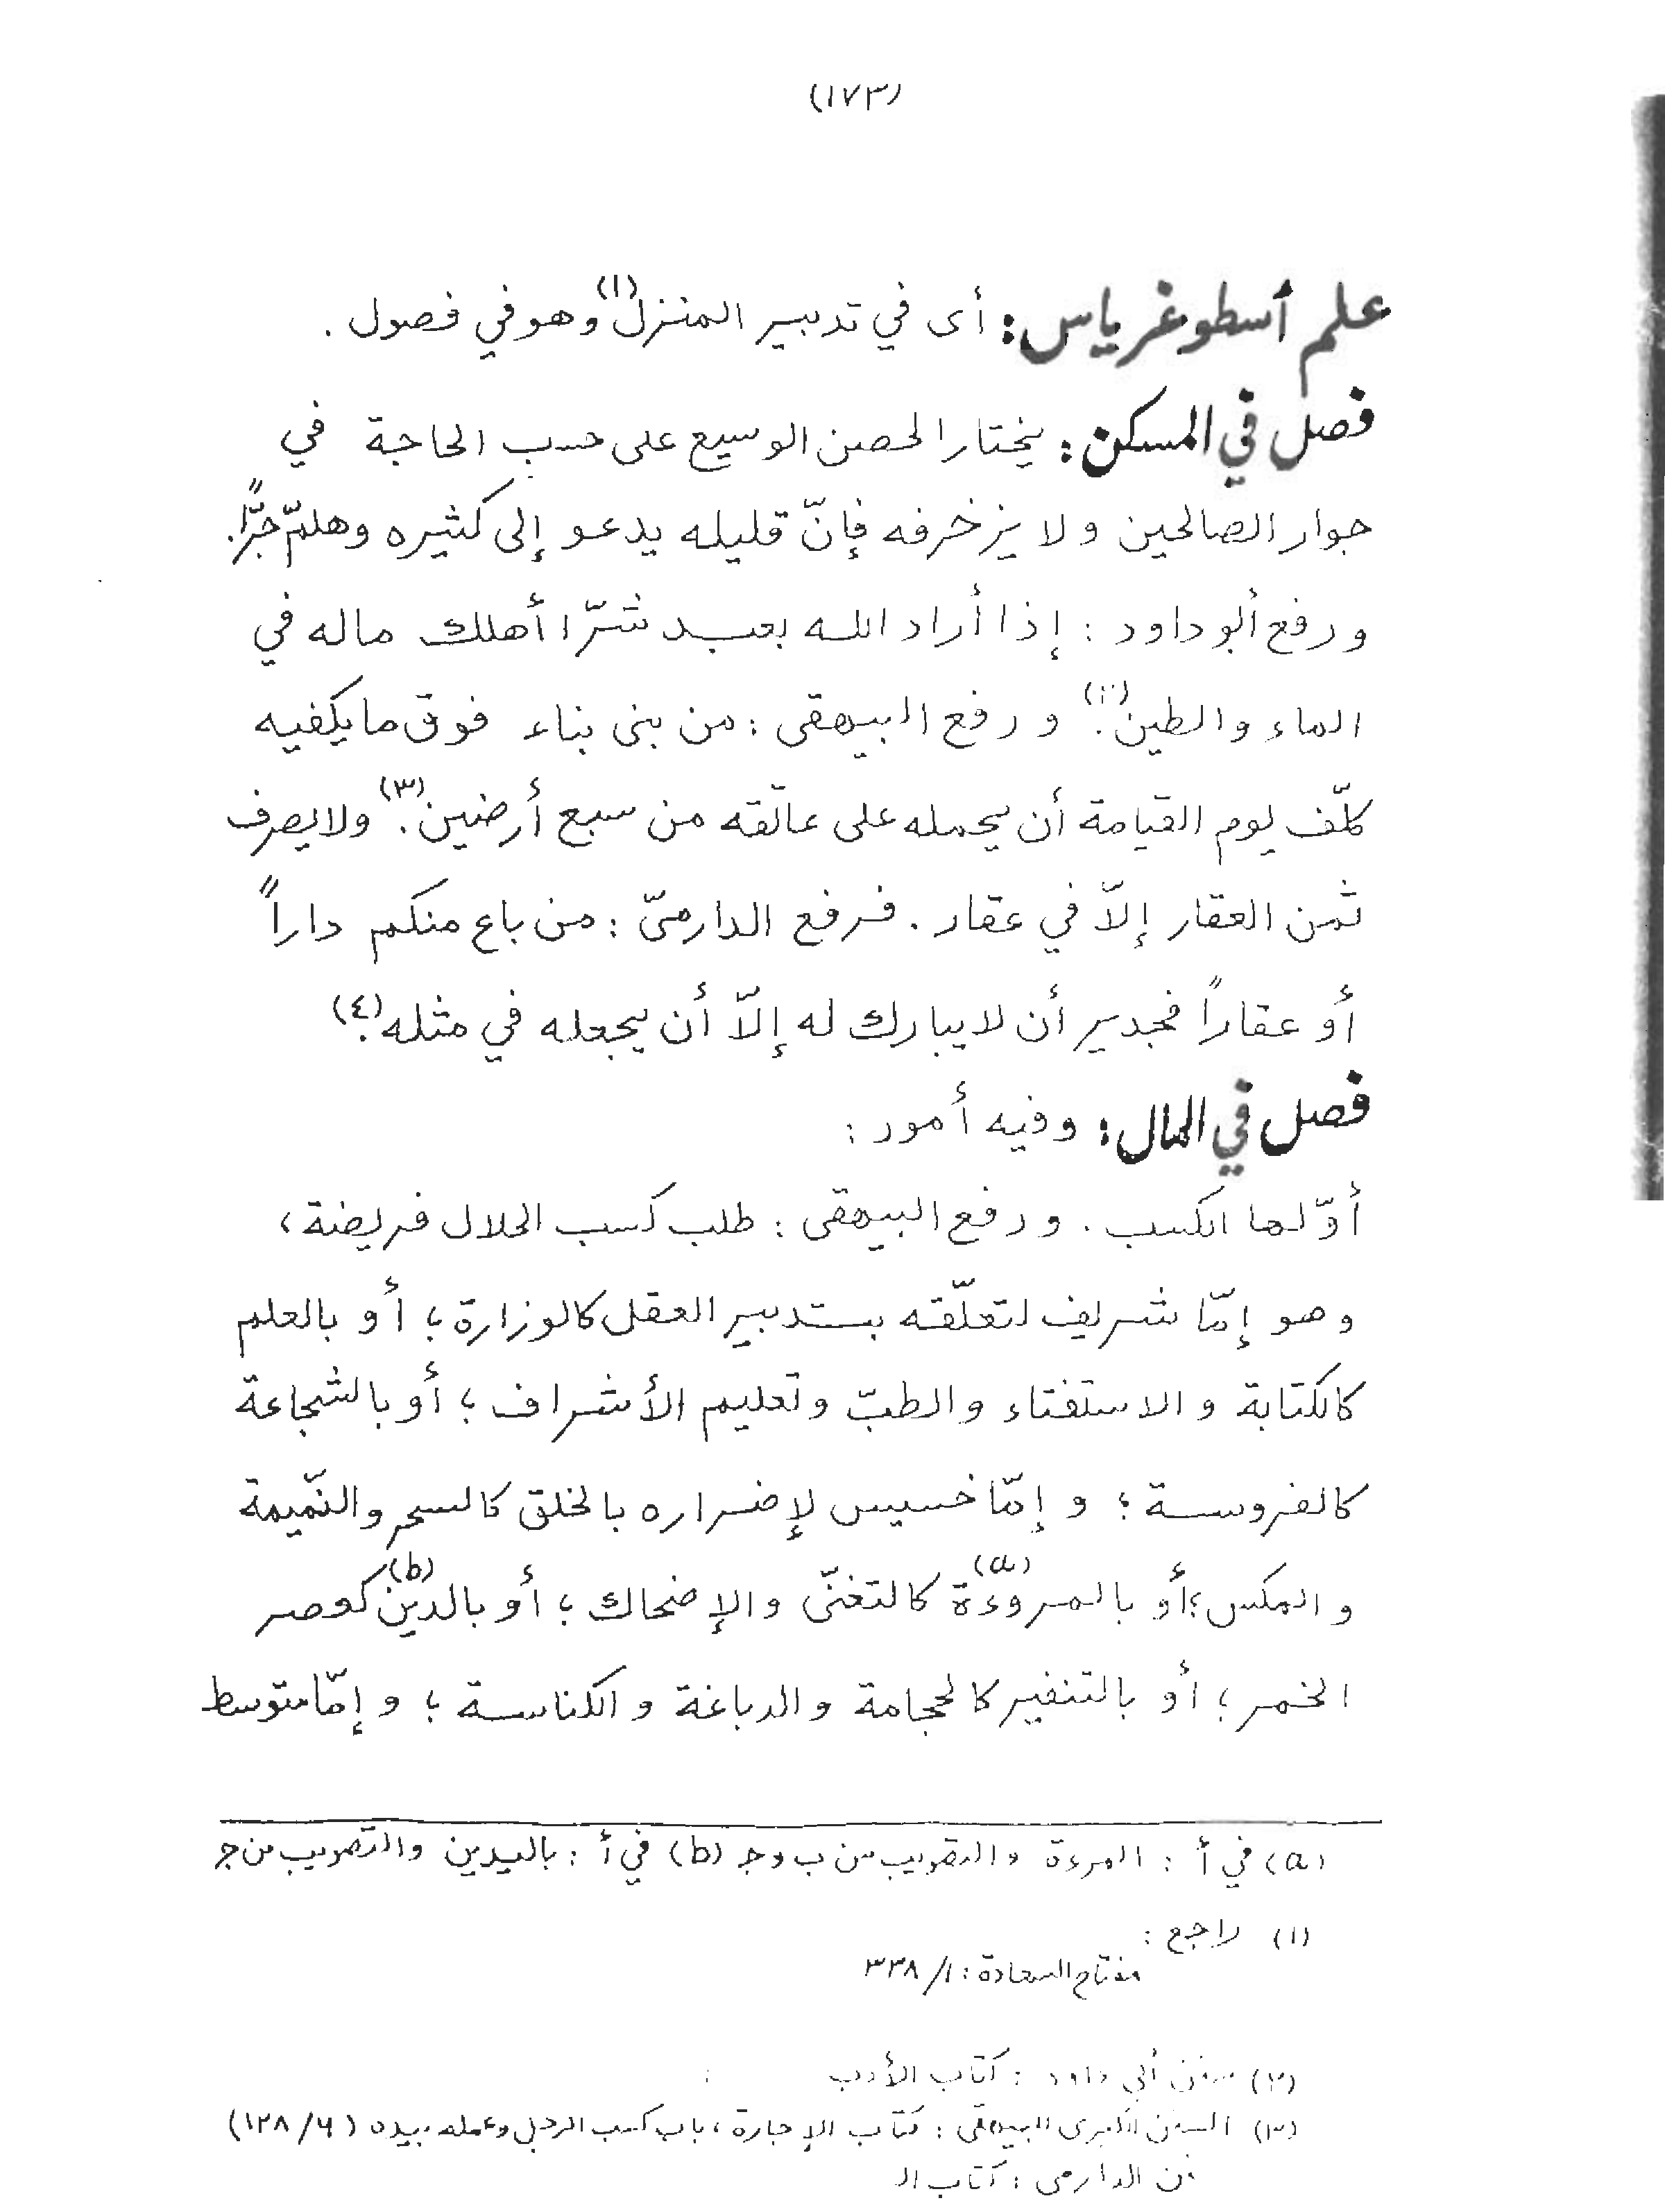 (١٧٣)
علم أسطوغرياس: أى في تدبير المنزل(١) وهو في فصول .
فصل في المسكن: يختار الحصن الوسيع على حسب الحاجة في
جوار الصالحين ولا يزخرفه فإنّ قليله يدعو إلى كثيره وهلمّ جرًّا.
ورفع أبو داود : إذا أراد الله بعبد شرّا أهلك ماله في
الماء والطين(٢). ورفع البيهقى : من بنى بناء فوق ما يكفيه
كلّف يوم القيامة أن يحمله على عاتقه من سبع أرضين(٣). ولا يصرف
ثمن العقار إلاّ في عقار . فرفع الدارمىّ : من باع منكم داراً
أو عقاراً فجدير أن لا يبارك له إلاّ أن يجعله في مثله(٤).
فصل في المال: وفيه أمور :
أوّلها الكسب . ورفع البيهقى : طلب كسب الحلال فريضة ،
وهو إمّا شريف لتعلّقه بتدبير العقل كالوزارة ؛ أو بالعلم
كالكتابة والاستفتاء والطبّ وتعليم الأشراف ؛ أو بالشجاعة
كالفروسة ؛ وإمّا خسيس لإضراره بالخلق كالسحر والنّميمة
والمكس ؛ أو بالمروءة(a) كالتغنّى والإضحاك ؛ أو بالدين(b) كعصر
الخمر ؛ أو بالتنفير كالحجامة والدباغة والكناسة ؛ وإمّا متوسط
(a) في أ : المرءة والتصويب من ب وج (b) في أ : باليدين والتصويب من ج
(١) راجع :
مفتاح السعادة : ١/ ٣٣٨
(٢) سنن أبي داود : كتاب الأدب
(٣) السنن الكبرى للبيهقى : كتاب الإجارة ، باب كسب الرجل وعمله بيده (٦/ ١٢٨)
الدارمى : كتاب